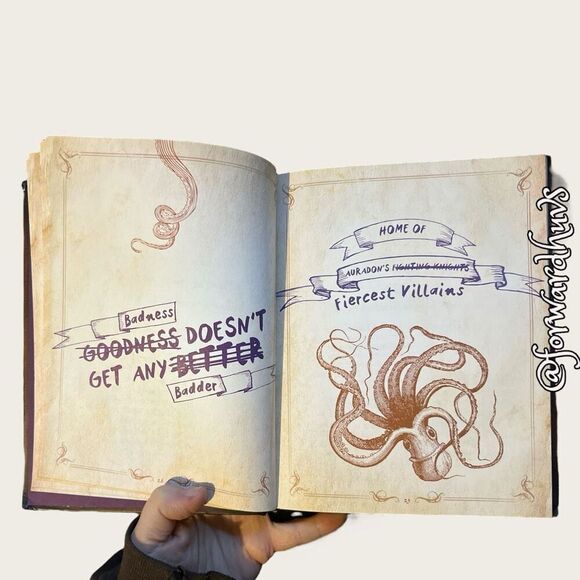 Badness
GOODNESS DOESN'T
GET ANY BETTER
Badder
22
HOME OF
AURADON'S FIGHTING KNIGHTS
Fiercest Villains
23
@forwardhuvs